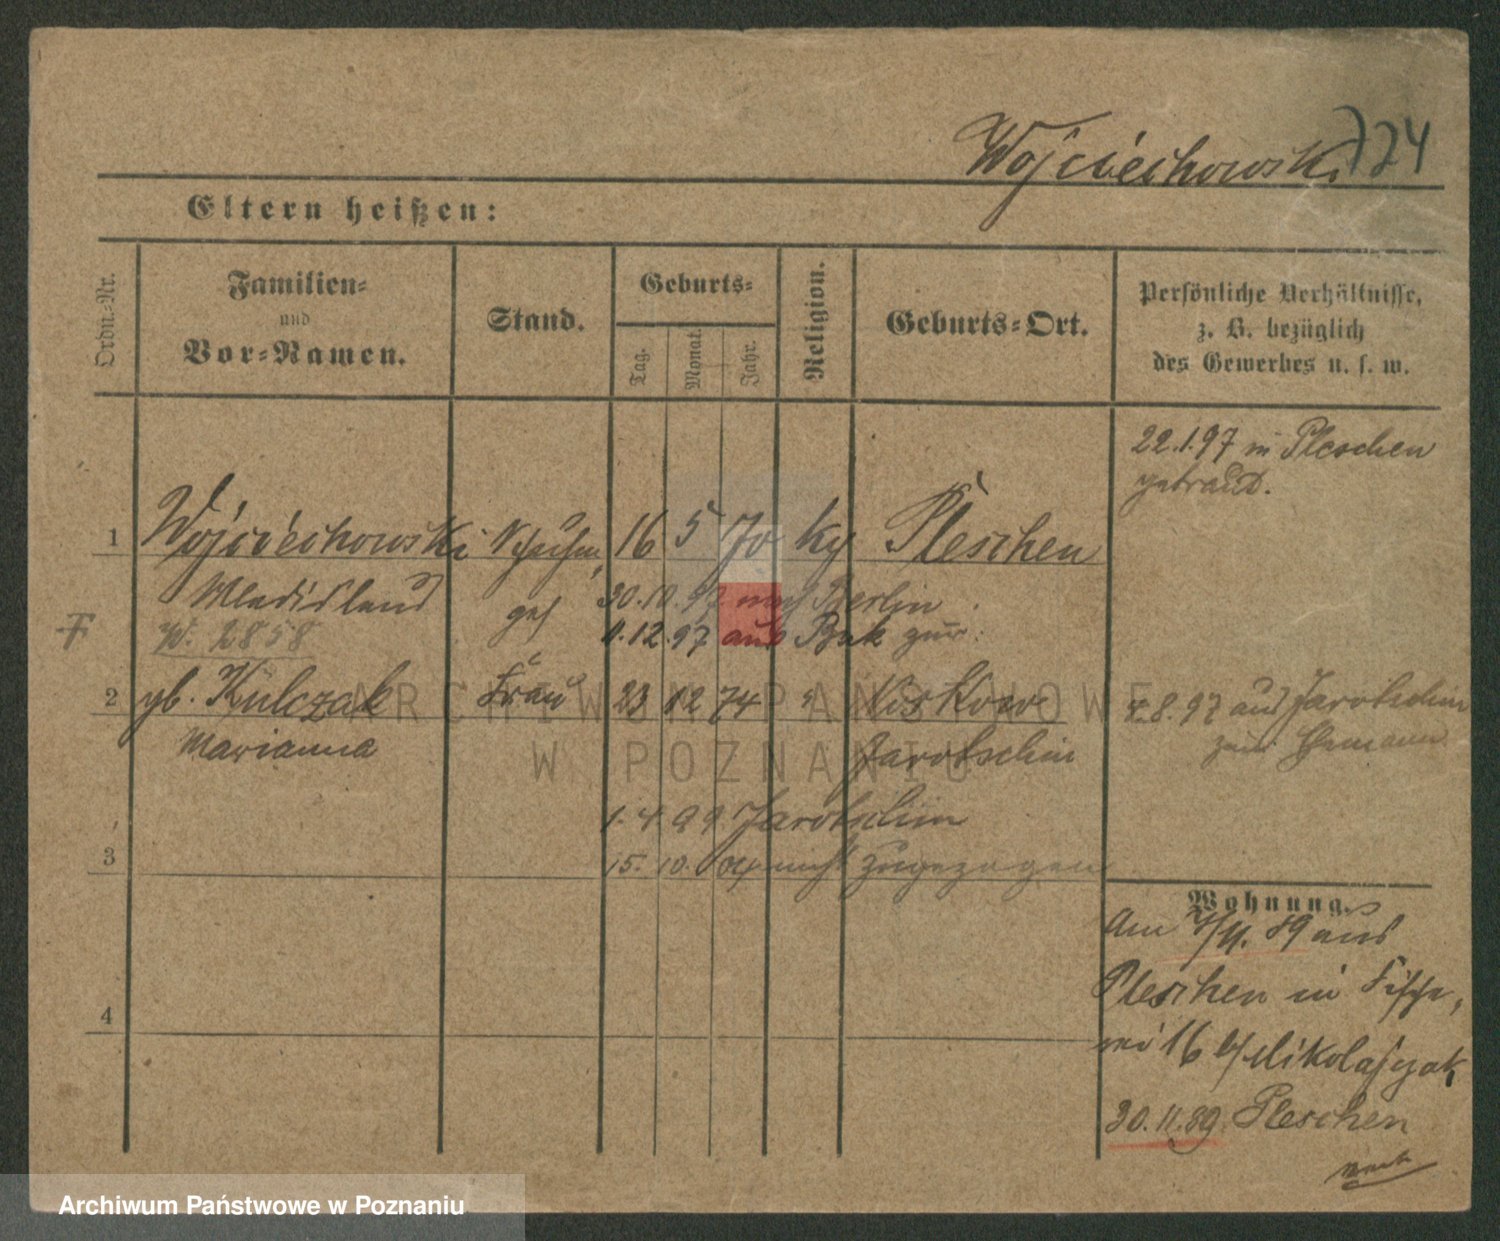 724
Wojciechowski
Eltern heißen:
Ordn.-Nr.
Familien-
und
Vor-Namen.
Stand.
Geburts-
Tag.
Monat.
Jahr.
Religion.
Geburts-Ort.
Persönliche Verhältnisse,
z. B. bezüglich
des Gewerbes u. s. w.
22.1.97 in Pleschen
getraut.
1 Wojciechowski 16 5 70 Pleschen
Wladislaus
30.10.97 nach Berlin
W. 2858
4.12.97 aus Buk zur.
2 gb. Kulczak Frau 23 12 74 " Witkow
Marianna Jarotschin
4.8.97 aus Jarotschin
zum Ehemann
1.4.99 Jarotschin
3 15.10.04 nicht zugezogen
Wohnung.
Am 7/11. 89 aus
Pleschen in Fische-
rei 16 b/ Mikolajczak
4
30.11.89 Pleschen
ARCHIWUM PAŃSTWOWE
W POZNANIU
Archiwum Państwowe w Poznaniu